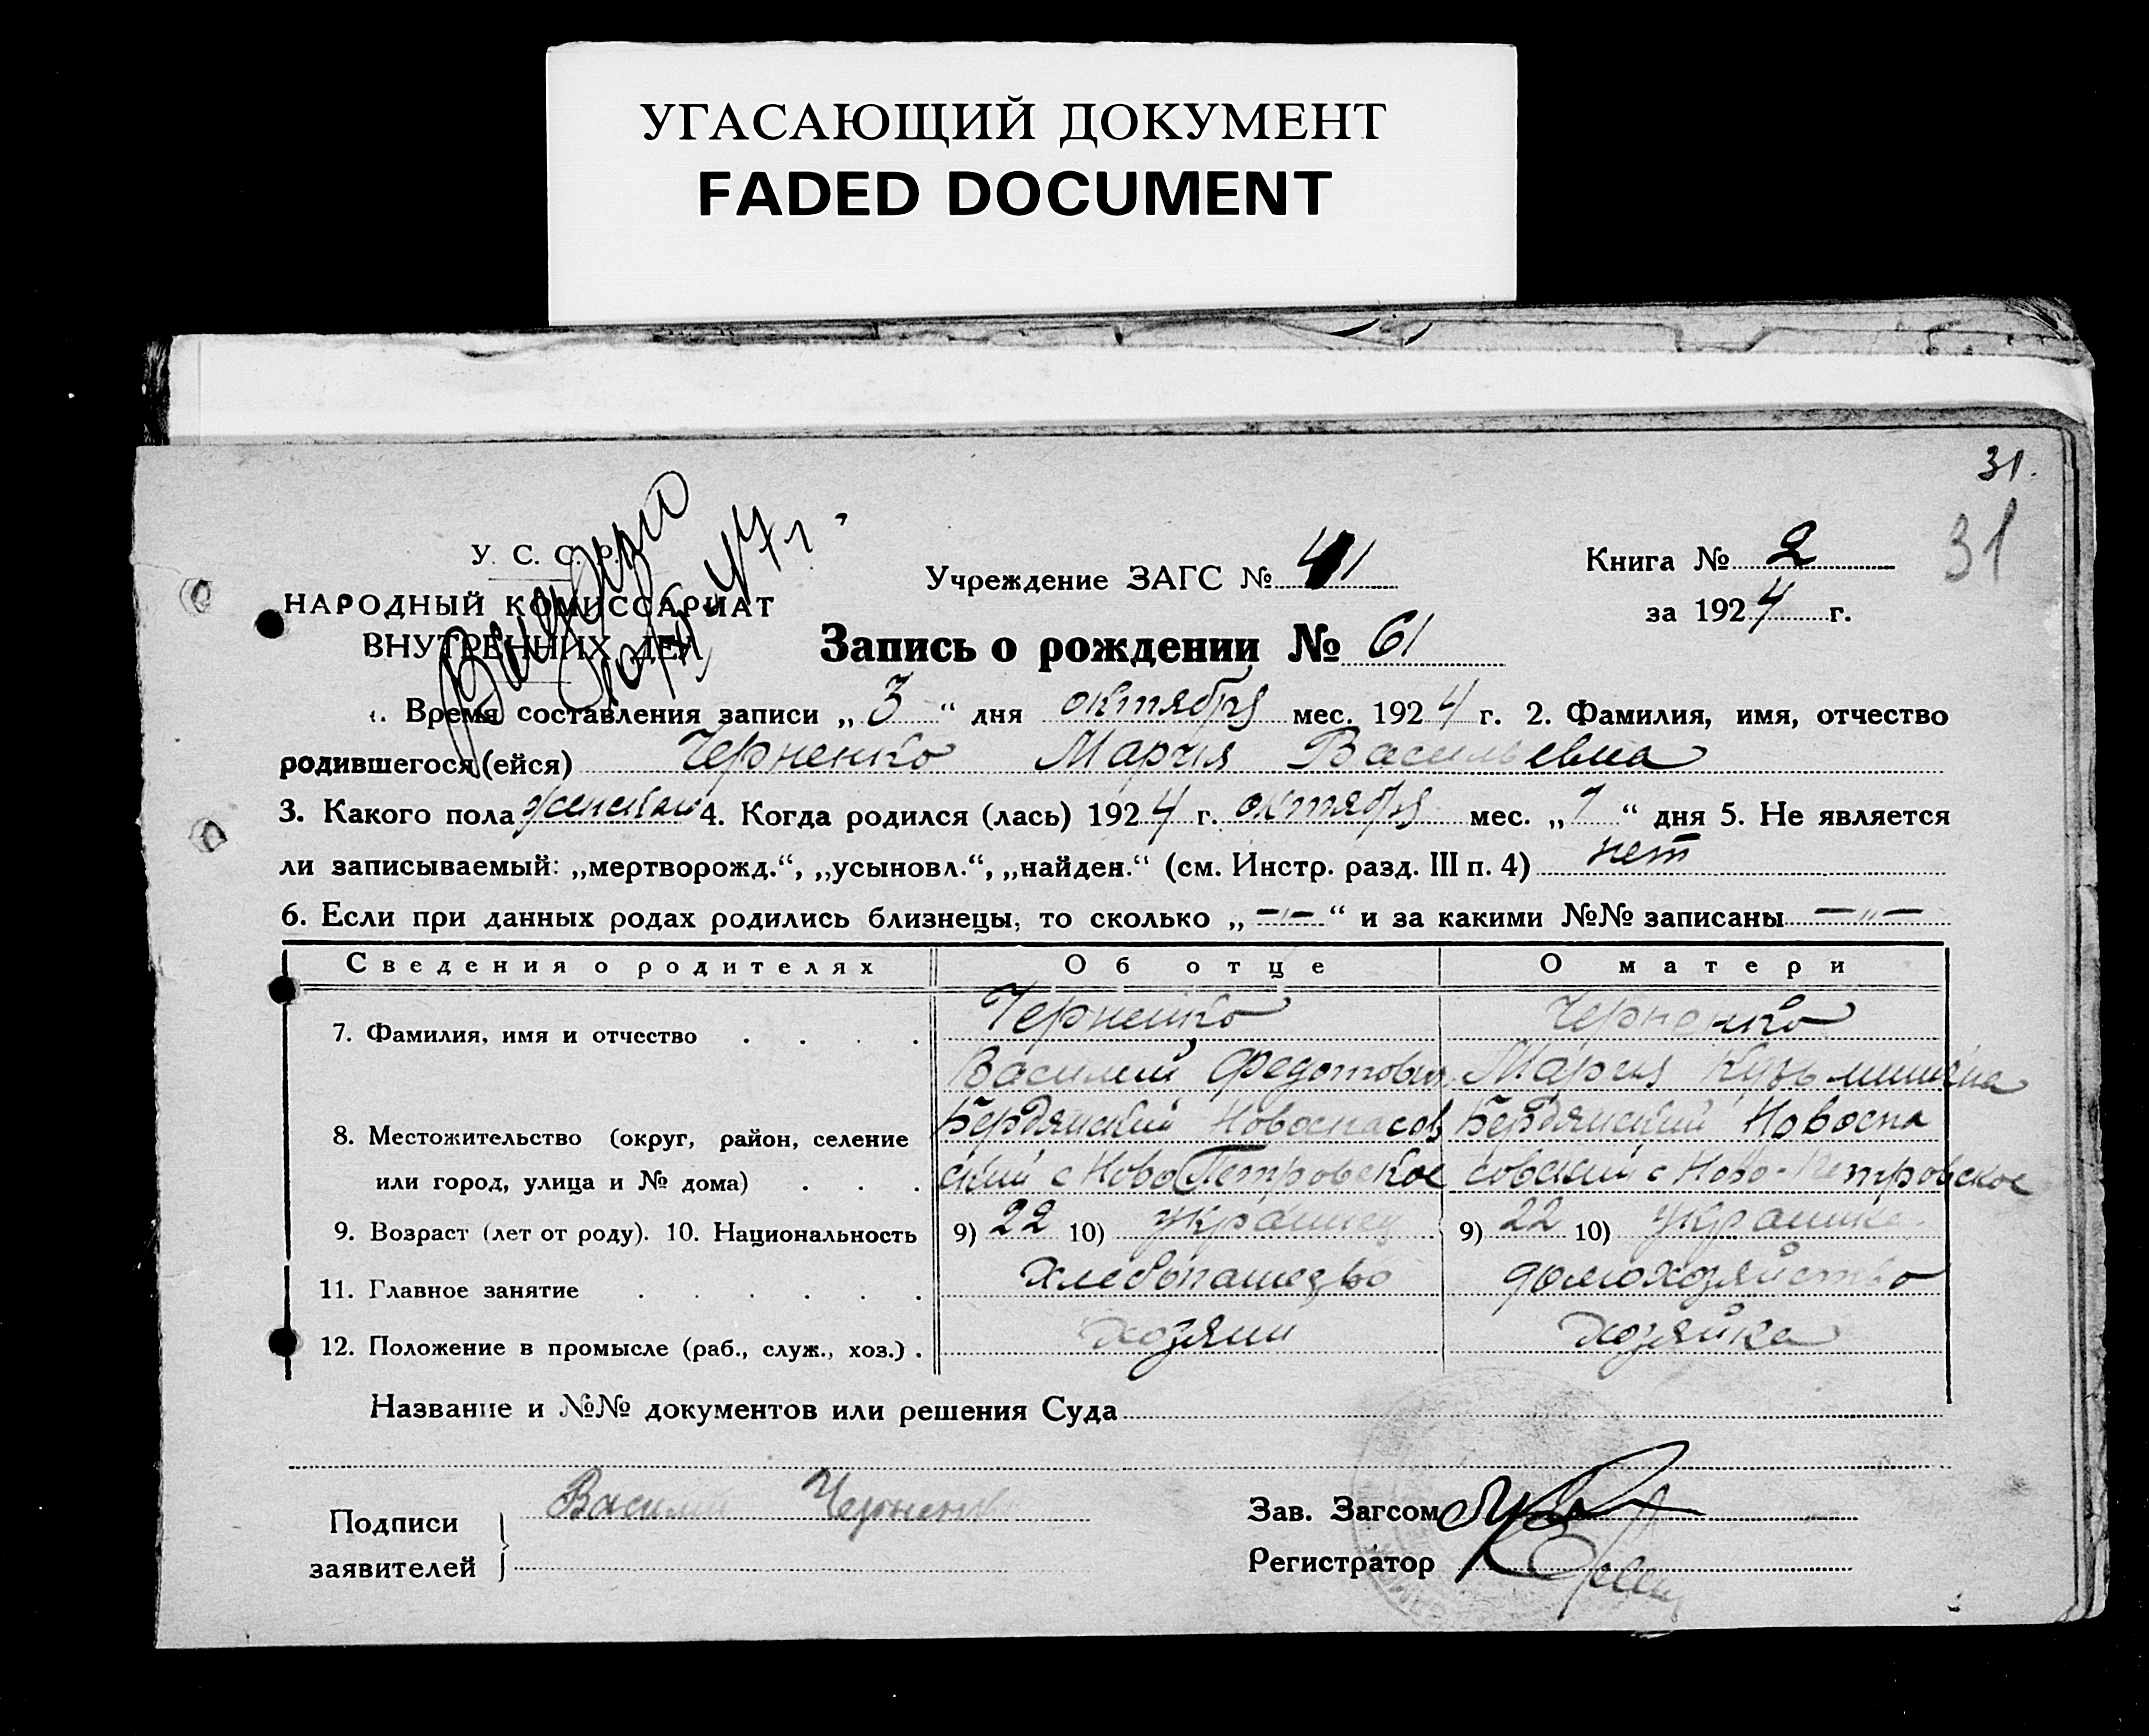 УГАСАЮЩИЙ ДОКУМЕНТ
FADED DOCUMENT
31.
31
У. С. С. Р.
НАРОДНЫЙ КОМИССАРИАТ
ВНУТРЕННИХ ДЕЛ
Учреждение ЗАГС № 41
Книга № 2
за 1924 г.
Запись о рождении № 61
1. Время составления записи „ 3 “ дня октября мес. 1924 г. 2. Фамилия, имя, отчество
родившегося (ейся) Черненко Мария Васильевна
3. Какого пола женскаго 4. Когда родился (лась) 1924 г. октября мес. „ 1 “ дня 5. Не является
ли записываемый: „мертворожд.“, „усыновл.“, „найден.“ (см. Инстр. разд. III п. 4) нет
6. Если при данных родах родились близнецы, то сколько „ —"— “ и за какими №№ записаны —"—
Сведения о родителях Об отце О матери
7. Фамилия, имя и отчество . . . . Черненко Черненко
Василий Федотович Мария Кузьминична
8. Местожительство (округ, район, селение Бердянский Новоспасов Бердянский Новоспа
или город, улица и № дома) . . . ский с Ново Петровское совский с Ново-Петровское
9. Возраст (лет от роду). 10. Национальность 9) 22 10) украинец 9) 22 10) украинка
11. Главное занятие . . . . . . Хлебопашество домохозяйство
12. Положение в промысле (раб., служ., хоз.) . хозяин хозяйка
Название и №№ документов или решения Суда
Подписи Василий Черненко
заявителей
Зав. Загсом
Регистратор